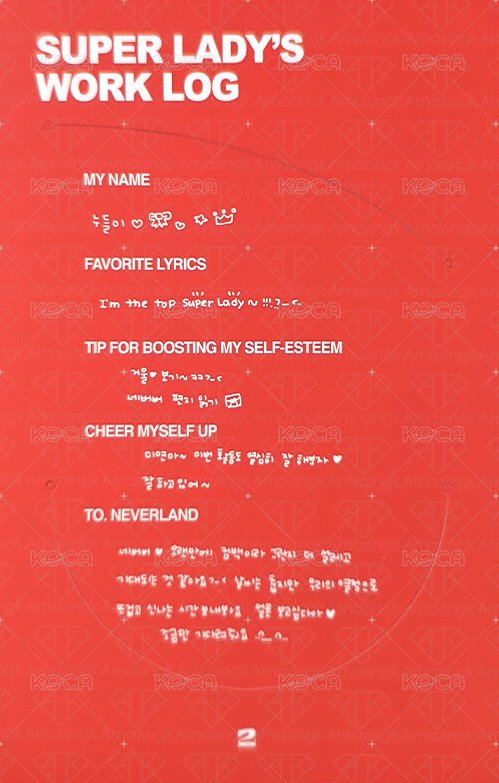 SUPER LADY'S
WORK LOG
MY NAME
누들이 ♡ ♡ ☆
FAVORITE LYRICS
I'm the top Super Lady ~ !!!
TIP FOR BOOSTING MY SELF-ESTEEM
거울 ♥ 보기~ ㅋㅋ
네버버 편지 읽기
CHEER MYSELF UP
미연아~ 이번 활동도 열심히 잘 해보자 ♥
잘하고있어~
TO. NEVERLAND
네버버 ♥ 오랜만에 컴백이라 그런지 더 설레고
기대되는 것 같아요 날씨는 춥지만 우리의 열정으로
뜨겁고 신나는 시간 보내봐요 얼른 보고싶다아 ♥
조금만 기다려줘요
2
KOCA
Amazingk